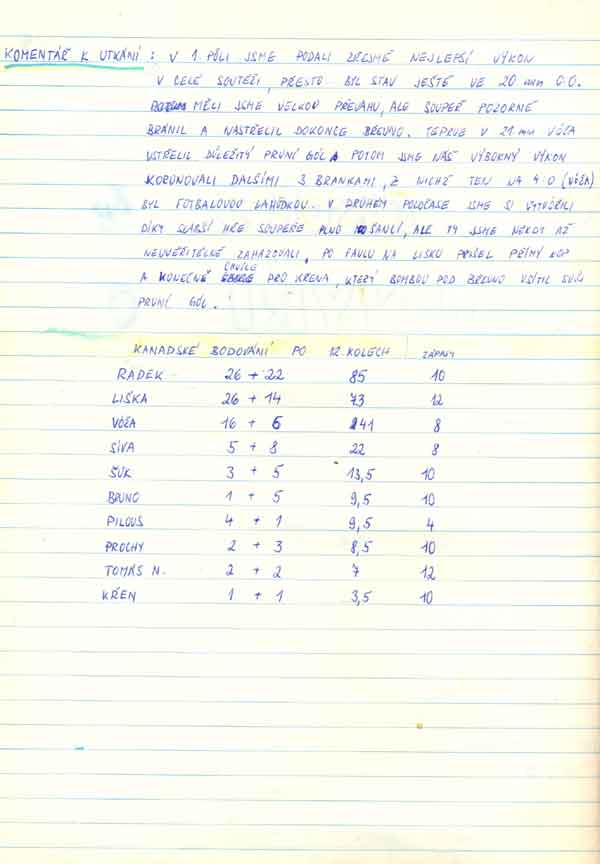 KOMENTÁŘ K UTKÁNÍ : V 1. PŮLI JSME PODALI ZŘEJMĚ NEJLEPŠÍ VÝKON
V CELÉ SOUTĚŽI, PŘESTO BYL STAV JEŠTĚ VE 20 min 0:0.
MĚLI JSME VELKOU PŘEVAHU, ALE SOUPEŘ POZORNĚ
BRÁNIL A NASTŘELIL DOKONCE BŘEVNO. TEPRVE V 21 min VÓŽA
VSTŘELIL DŮLEŽITÝ PRVNÍ GÓL A POTOM JSME NÁŠ VÝBORNÝ VÝKON
KORUNOVALI DALŠÍMI 3 BRANKAMI, Z NICHŽ TEN NA 4:0 (VÓŽA)
BYL FOTBALOVOU LAHŮDKOU. V DRUHÉM POLOČASE JSME SI VYTVOŘILI
DÍKY SLABŠÍ HŘE SOUPEŘE PLNO ŠANCÍ, ALE TY JSME NĚKDY AŽ
NEUVĚŘITELNĚ ZAHAZOVALI, PO FAULU NA LIŠKU PŘIŠEL PŘÍMÝ KOP
A KONEČNĚ CHVÍLE PRO KŘENA, KTERÝ BOMBOU POD BŘEVNO VSÍTIL SVŮJ
PRVNÍ GÓL.
KANADSKÉ BODOVÁNÍ PO 12. KOLECH ZÁPASY
RADEK 26 + 22 85 10
LIŠKA 26 + 14 73 12
VÓŽA 16 + 6 41 8
SÍVA 5 + 8 22 8
ŠUK 3 + 5 13,5 10
BRUNO 1 + 5 9,5 10
PILOUS 4 + 1 9,5 4
PROCHY 2 + 3 8,5 10
TOMÁŠ N. 2 + 2 7 12
KŘEN 1 + 1 3,5 10